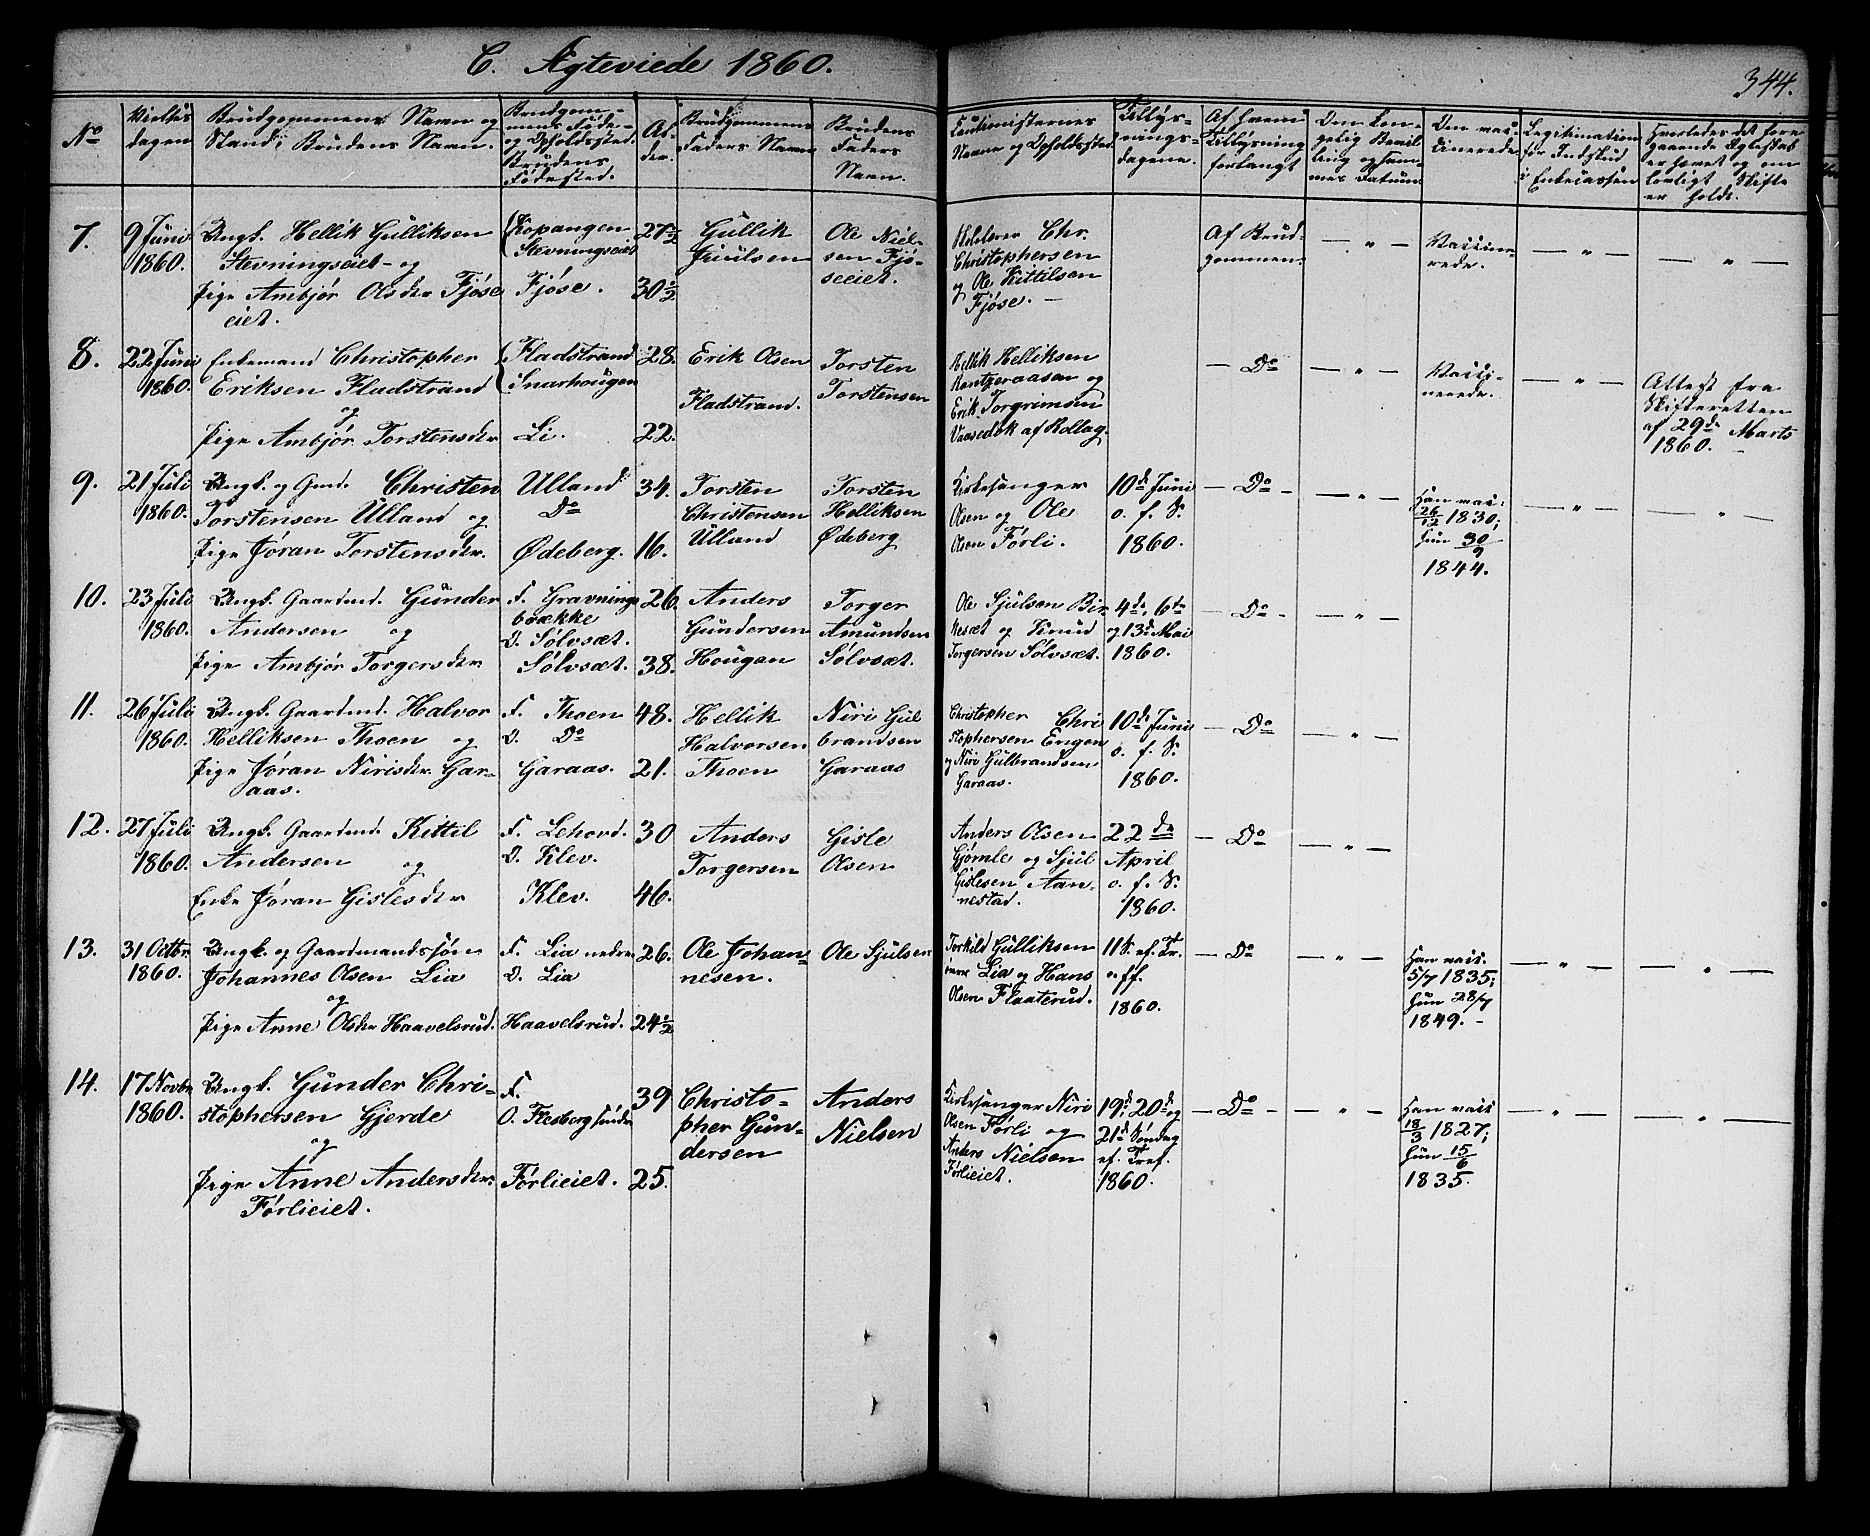 C. Ægteviede 1860.
344.
No
Vielses
dagen
Brudgommens Navn og
Stand; Brudens Navn.
Brudgom-
mens Føde-
og Opholdssted.
Brudens
Fødested.
Al-
der.
Brudgommens
Faders Navn
Brudens
Faders
Navn.
Cautionisternes
Navne og Opholdssted.
Tillys-
nings-
dagene.
Af hvem
Tillysning
forlangt
Den kon-
gelig Bevil-
ling og sam-
mes Datum
Om vac-
cinerede.
Legitimation
for Indskud
i Enkecassen
Hvorledes det fore
gaaende Egteskab
er hævet og om
lovligt Skifte
er holdt.
7.
9 Juni
1860.
Ungk. Hellik Gulliksen
Stevningseiet og
Pige Ambjør Olsdtr Fjøse
eiet.
Kopangen
Stevningseiet
Fjøse.
27½
30½
Gullik
Juulsen
Ole Niel-
sen Fjø-
seeiet.
Chr.
Christophersen
og Ole Kittilsen
Fjøse. —
Af Brud-
gommen.
— " —
Vaccine-
rede.
— " —
— " —
8.
22 Juni
1860.
Enkemand Christopher
Eriksen Fladstrand
og
Pige Ambjør Torstensdtr
Fladstrand
Snarhougen
Li.
28.
22.
Erik Olsen
Fladstrand.
Torsten
Torstensen
Hellik Helliksen
og
Erik Torgrimsen
af Rollag.
— Do
— " —
Vacci-
nerede.
— " —
Attest fra
Skifteretten
af 29de Marts
1860. —
9.
21 Juli
1860.
Ungk. og Gmd. Christen
Torstensen Ulland og
Pige Jøran Torstensdtr.
Ulland
Do
Ødeberg.
34.
16.
Torsten
Christensen
Ulland
Torsten
Helliksen
Ødeberg
Kirkesanger
Olsen og Ole
Olsen Førli.
10de Juni
o. f. S.
1860.
— Do —
— " —
Han vac:
26/12 1830;
hun 30/9
1844.
— " —
— " —
10.
23 Juli
1860.
Ungk. Gaardmd. Gunder
Andersen og
Pige Ambjør Torgersdtr
F. Gravnings
bække
O. Sølvsæt.
Sølvsæt.
26.
38.
Anders
Gundersen
Hougan
Torger
Amundsen
Sølvsæt.
Ole Sjulsen Bir-
kesæt og Knud
Torgersen Sølvsæt.
4de, 6te
og 13de Mai
1860.
— Do —
— " —
11.
26 Juli
1860.
Ungk. Gaardmd. Halvor
Helliksen Thoen og
Pige Jøran Nirisdtr Gar-
aas.
F. Thoen
O. Do
Garaas.
48.
21.
Hellik
Halvorsen
Thoen
Niri Gul
brandsen
Garaas
Christopher Chri
stophersen Engen
og Niri Gulbrandsen
Garaas.
10de Juni
o. f. S.
1860.
— Do
— " —
12.
27 Juli
1860.
Ungk. Gaardmd. Kittil
Andersen og
Enke Jøran Gislesdtr
F. Lehovd.
O. Klev.
Klev.
30
46.
Anders
Torgersen
Gisle
Olsen
Anders Olsen
Gjømle og Sjul
Gislesen Aan-
nestad.
22de
April
o. f. S.
1860.
— Do
— " —
13.
31 Octbr
1860.
Ungk. og Gaardmandssøn
Johannes Olsen Lia
og
Pige Anne Olsdtr Haavelsrud.
F. Lia nedre
O. Lia
Haavelsrud.
26.
24½
Ole Johan-
nesen.
Ole Sjulsen
Torkild Gulliksen
Lia og Hans
Olsen Flaaterud.
11 S. ef. Tr.
o. ff.
1860.
— Do
— " —
Han vac.
5/7 1835;
hun 28/7
1849. -
— " —
— " —
14.
17 Novbr
1860.
Ungk. Gunder Chri-
stophersen Gjerde
og
Pige Anne Andersdtr
Førlieiet.
F.
O. Flesberg søndre
Førlieiet.
39
25.
Christo-
pher Gun-
dersen
Anders
Nielsen
Kirkesanger Niri
Olsen Førli og
Anders Nielsen
Førlieiet.
19de 20de og
21de Søndag
ef. Tref.
1860.
— Do —
— " —
Han vacc
18/3 1827;
hun 15/6
1835.
— " —
— " —